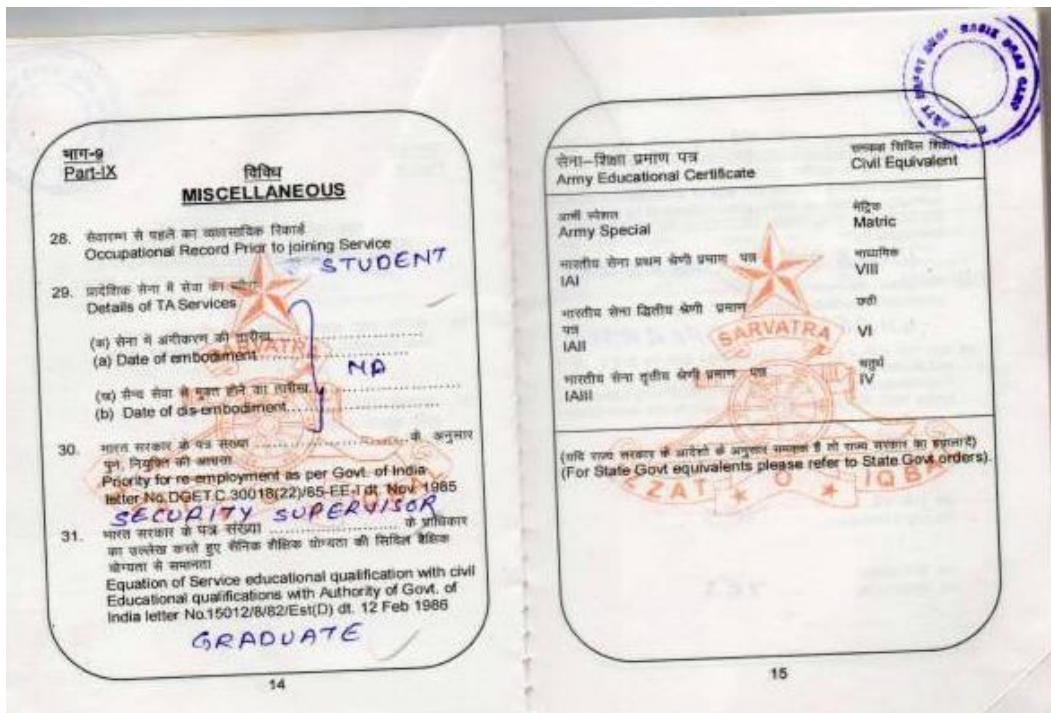 भाग-9
Part-IX
विविध
MISCELLANEOUS
28. सेवारम्भ से पहले का व्यावसायिक रिकार्ड
Occupational Record Prior to joining Service
STUDENT
29. प्रादेशिक सेना में सेवा का ब्यौरा
Details of TA Services
(क) सेना में अंगीकरण की तारीख
(a) Date of embodiment
NA
(ख) सैन्य सेवा से मुक्त होने का तारीख
(b) Date of dis-embodiment
30. भारत सरकार के पत्र संख्या के अनुसार
पुन. नियुक्ति की
Priority for re-employment as per Govt. of India
letter No.DGET.C.30018(22)/85-EE-I dt. Nov. 1985
SECURITY SUPERVISOR
31. भारत सरकार के पत्र संख्या के प्राधिकार
का उल्लेख करते हुए सैनिक शैक्षिक योग्यता की सिविल शैक्षिक
योग्यता से समानता
Equation of Service educational qualification with civil
Educational qualifications with Authority of Govt. of
India letter No.15012/8/82/Est(D) dt. 12 Feb 1986
GRADUATE
14
सेना-शिक्षा प्रमाण पत्र
Army Educational Certificate
Civil Equivalent
आर्मी स्पेशल
Army Special
मेट्रिक
Matric
भारतीय सेना प्रथम श्रेणी प्रमाण पत्र
IAI
माध्यमिक
VIII
भारतीय सेना द्वितीय श्रेणी प्रमाण
पत्र
IAII
छठी
VI
भारतीय सेना तृतीय श्रेणी प्रमाण पत्र
IAIII
चतुर्थ
IV
(यदि राज्य सरकार के आदेशो के अनुसार समकक्ष है तो राज्य सरकार का हवाला दें)
(For State Govt equivalents please refer to State Govt orders).
15
SARVATRA
SARVATRA
IZZAT O IQBAL